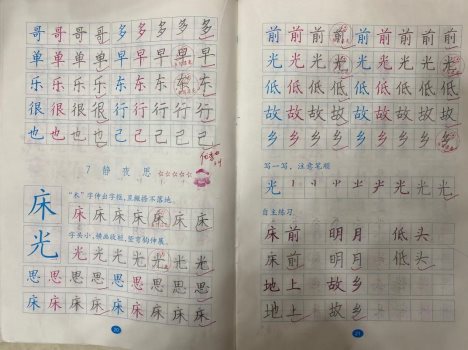 哥 哥 哥 哥 多 多 多 多
单 单 单 单 早 早 早 早
乐 乐 乐 乐 东 东 东 东
很 很 很 很 行 行 行 行
也 也 也 也 己 己 己 己
7 静 夜 思
床
"木"字伸出字框,竖撇捺不落地。
床 床 床 床 床 床 床
光
字头小,横画收短,竖弯钩伸展。
光 光 光 光 光 光 光
思 思 思 思 思 思 思 思
床 床 床 床 床 床 床 床
20
前 前 前 前 前 前 前 前
光 光 光 光 光 光 光 光
低 低 低 低 低 低 低 低
故 故 故 故 故 故 故 故
乡 乡 乡 乡 乡 乡 乡 乡
写一写,注意笔顺
光 光 光 光
自主练习
床前 明月 低头
床前 明月 低头
地上 故乡
地上 故乡
21